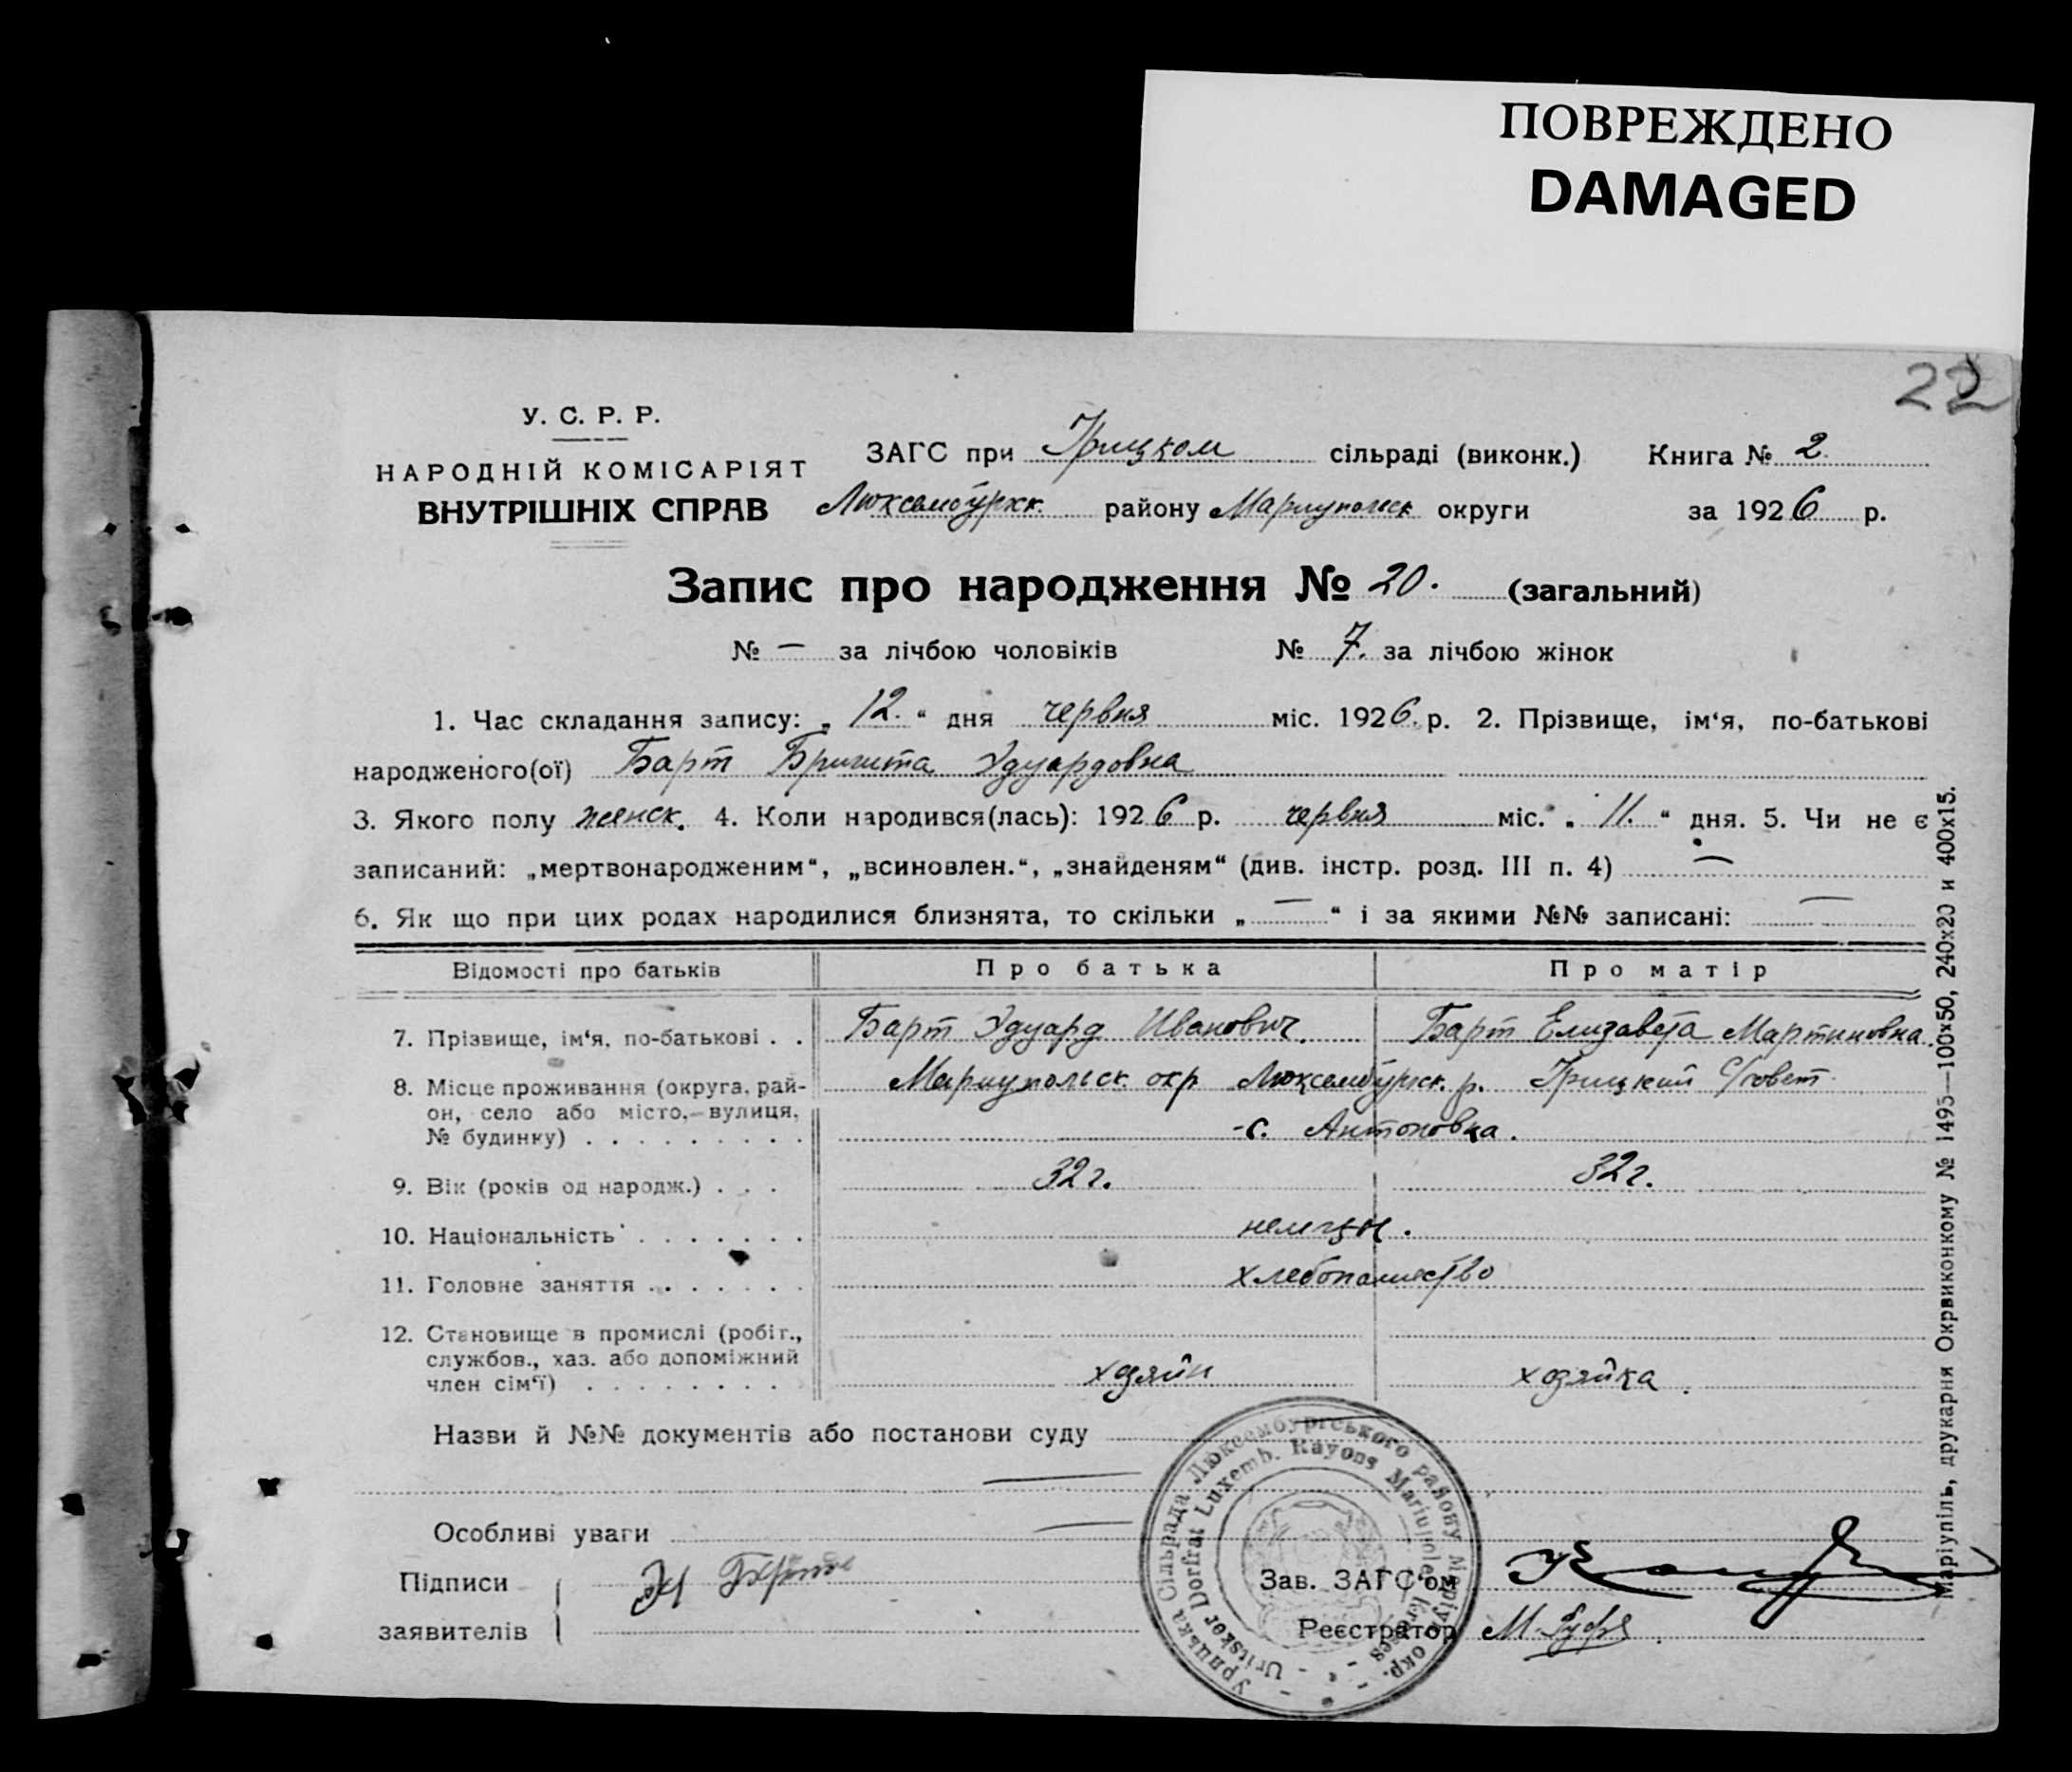 ПОВРЕЖДЕНО
DAMAGED
22
У. С. Р. Р.
НАРОДНІЙ КОМІСАРІЯТ
ВНУТРІШНІХ СПРАВ
ЗАГС при Урицком сільраді (виконк.) Книга № 2.
Люксембургк. району Мариупольск округи за 1926 р.
Запис про народження № 20. (загальний)
№ — за лічбою чоловіків № 7. за лічбою жінок
1. Час складання запису: „ 12. “ дня червня міс. 1926. р. 2. Прізвище, ім‘я, по-батькові
народженого(ої) Барт Бригита Эдуардовна
3. Якого полу женск. 4. Коли народився(лась): 1926 р. червня міс. „ 11. “ дня. 5. Чи не є
записаний: „мертвонародженим“, „всиновлен.“, „знайденям“ (див. інстр. розд. III п. 4) —
6. Як що при цих родах народилися близнята, то скільки „ — “ і за якими №№ записані: —
Відомості про батьків Про батька Про матір
7. Прізвище, ім‘я, по-батькові . . Барт Эдуард Иванович. Барт Елизавета Мартиновна.
8. Місце проживання (округа, рай- Мариупольск. окр Люксембургск. р. Урицкий с/совет.
он, село або місто,—вулиця,
№ будинку) . . . . . . . . . с. Антоновка.
9. Вік (років од народж.) . . . 32 г. 32 г.
10. Національність . . . . . . . немцы.
11. Головне заняття . . . . . . . хлебопашество
12. Становище в промислі (робіт.,
службов., хаз. або допоміжний
член сім‘ї) . . . . . . . . хозяин хозяйка.
Назви й №№ документів або постанови суду —
Особливі уваги —
Підписи
заявителів
Зав. ЗАГС‘ом
Реєстратор М.
Урицька Сільрада Люксембургського району Маріуп. окр.
Uritsker Dorfrat Luxemb. Rayons Mariupoler Kreises
Маріупіль, друкарня Окрвиконкому № 1495—100х50, 240х20 и 400х15.